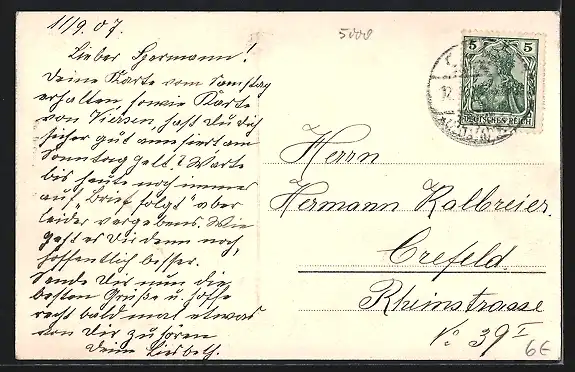 11/9.07.
5000
Lieber Hermann!
Deine Karte vom Samstag
erhalten, sowie Karte
von Viersen, hast Du dich
sicher gut amusiert am
Sonntag gelt? Warte
bis heute noch immer
auf "Brief folgt" aber
leider vergebens. Wie
geht es Dir denn noch,
hoffentlich besser.
Sende Dir nun die
besten Grüße u. hoffe
recht bald mal etwas
von Dir zu hören
Deine Liesbeth.
5 5
DEUTSCHES REICH
Herrn
Hermann Kalbreier.
Crefeld.
Rheinstrasse
No 39 I
6€